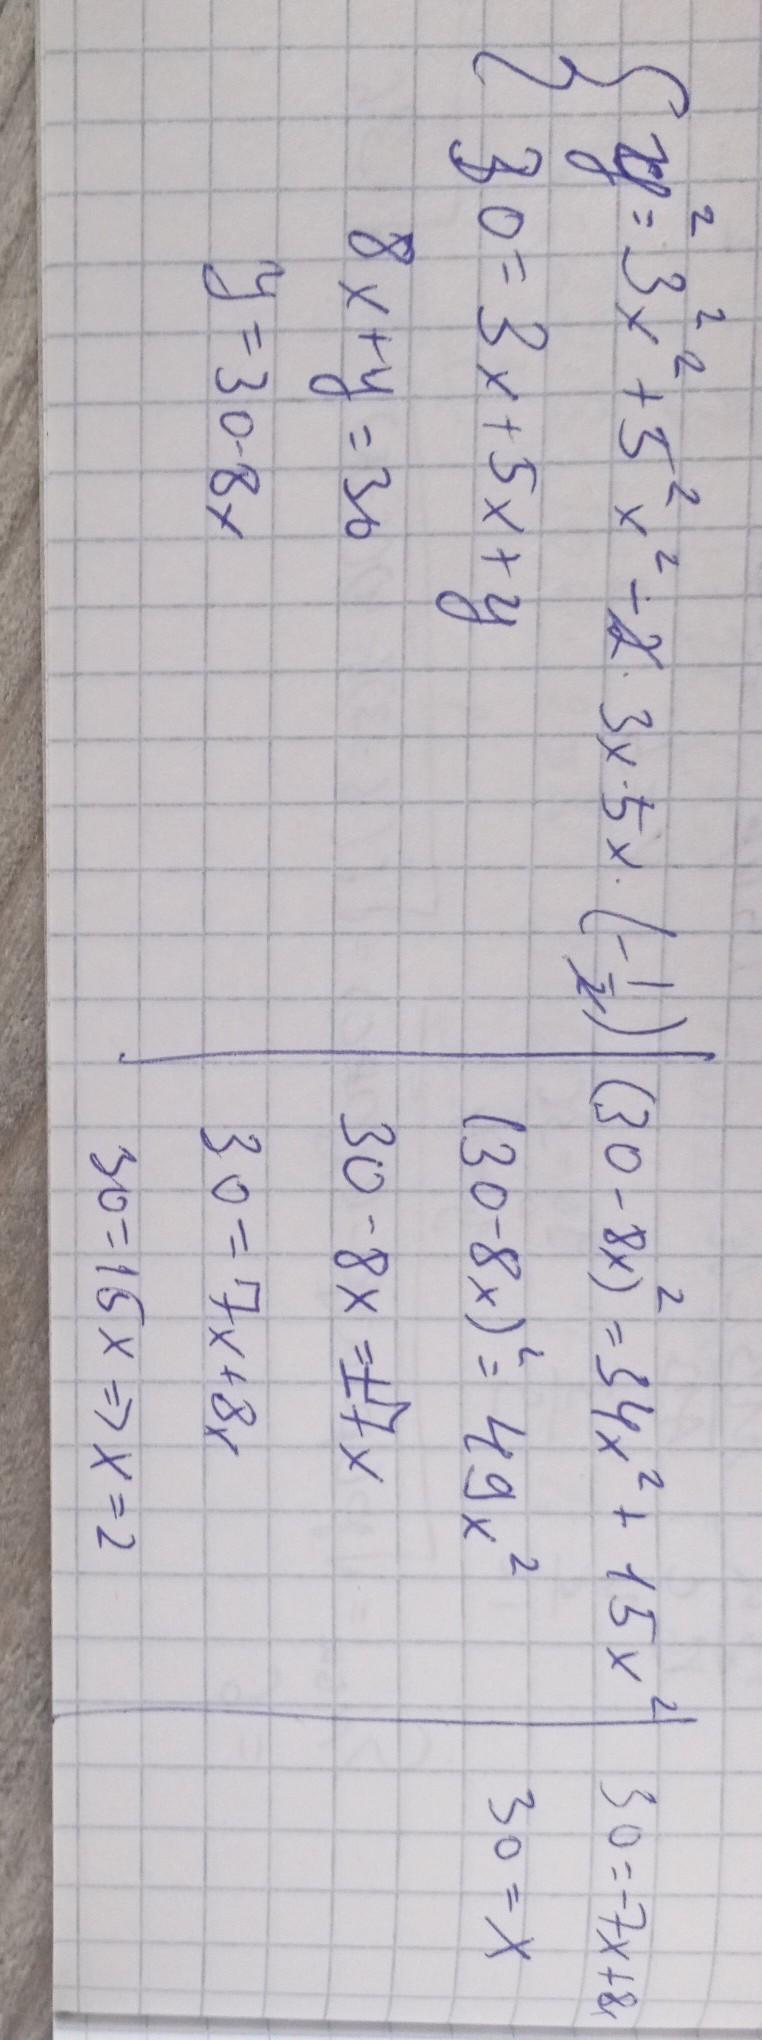 { y² = 3²x² + 5²x² - 2·3x·5x·(-1/2)
30 = 3x + 5x + y
8x + y = 30
y = 30 - 8x
(30 - 8x)² = 34x² + 15x²
(30 - 8x)² = 49x²
30 - 8x = ±7x
30 = 7x + 8x
30 = 15x => x = 2
30 = -7x + 8x
30 = x